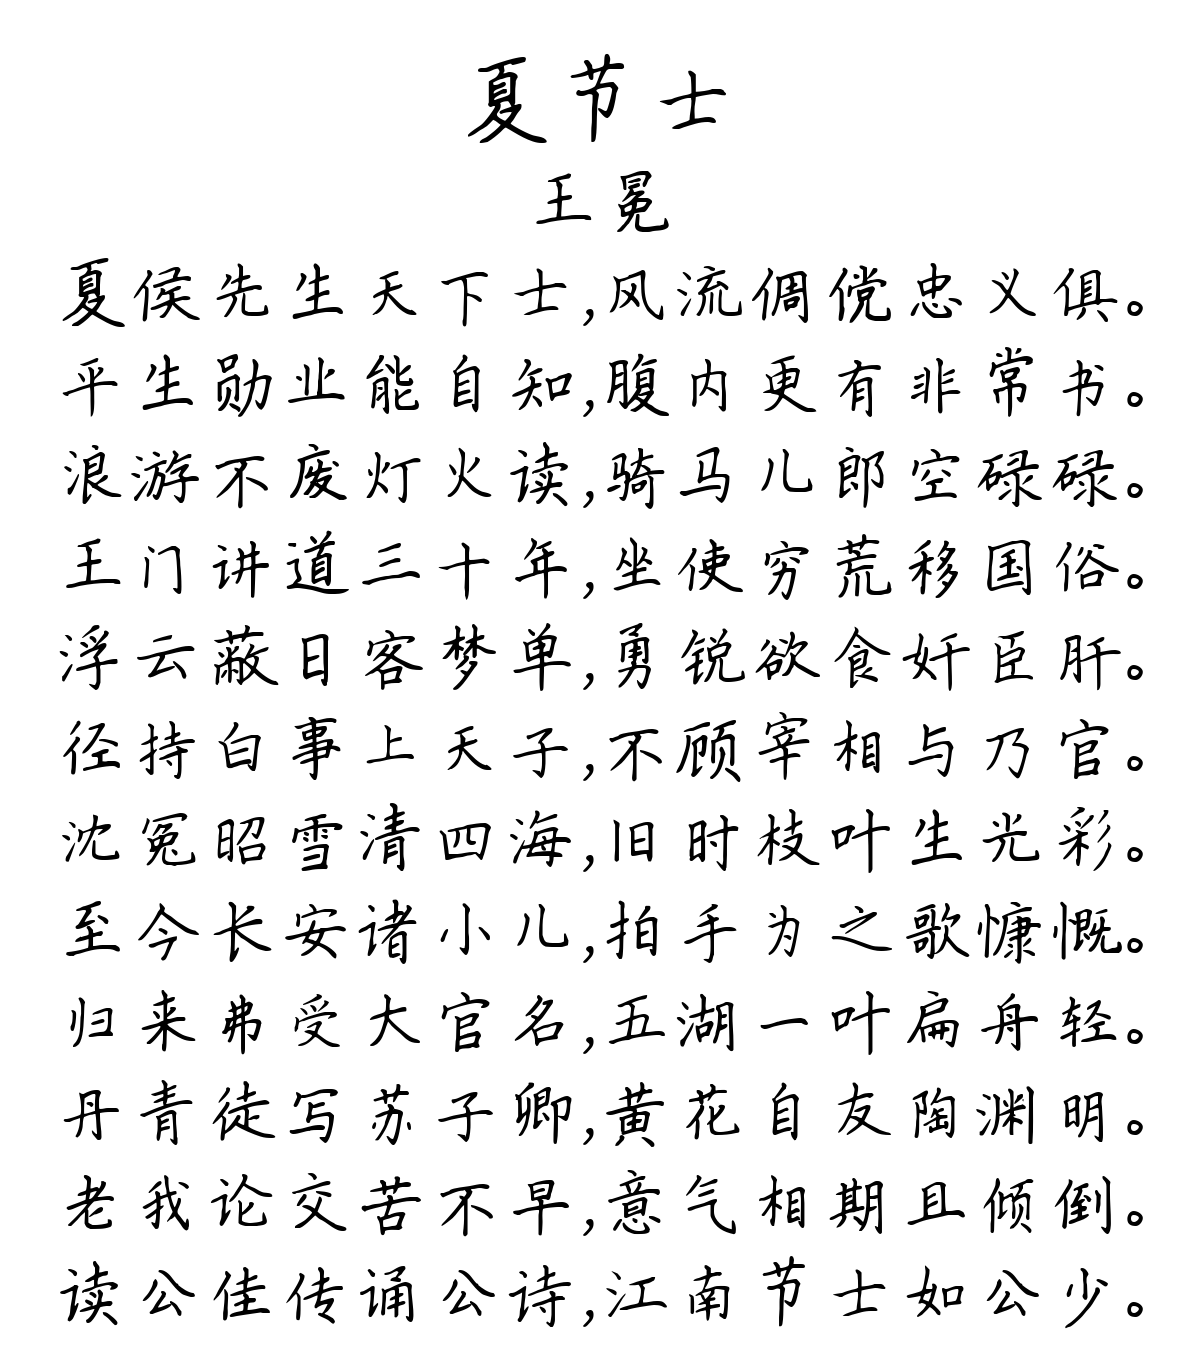 夏节士
王冕
夏侯先生天下士,风流倜傥忠义俱。
平生勋业能自知,腹内更有非常书。
浪游不废灯火读,骑马儿郎空碌碌。
王门讲道三十年,坐使穷荒移国俗。
浮云蔽日客梦单,勇锐欲食奸臣肝。
径持白事上天子,不顾宰相与乃官。
沈冤昭雪清四海,旧时枝叶生光彩。
至今长安诸小儿,拍手为之歌慷慨。
归来弗受大官名,五湖一叶扁舟轻。
丹青徒写苏子卿,黄花自友陶渊明。
老我论交苦不早,意气相期且倾倒。
读公佳传诵公诗,江南节士如公少。